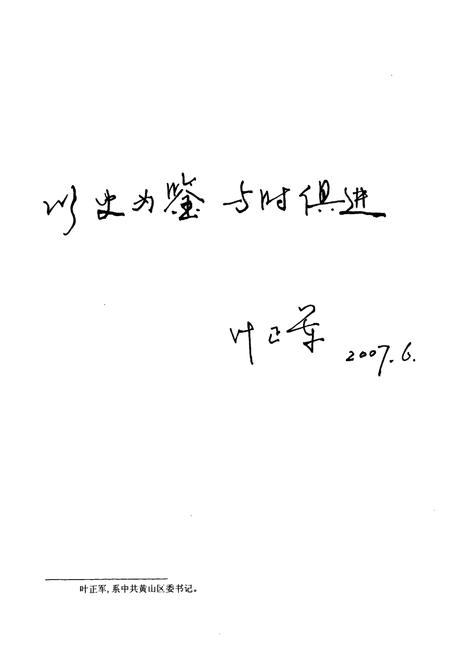 以史为鉴 与时俱进
叶正军
2007.6.
叶正军,系中共黄山区委书记。